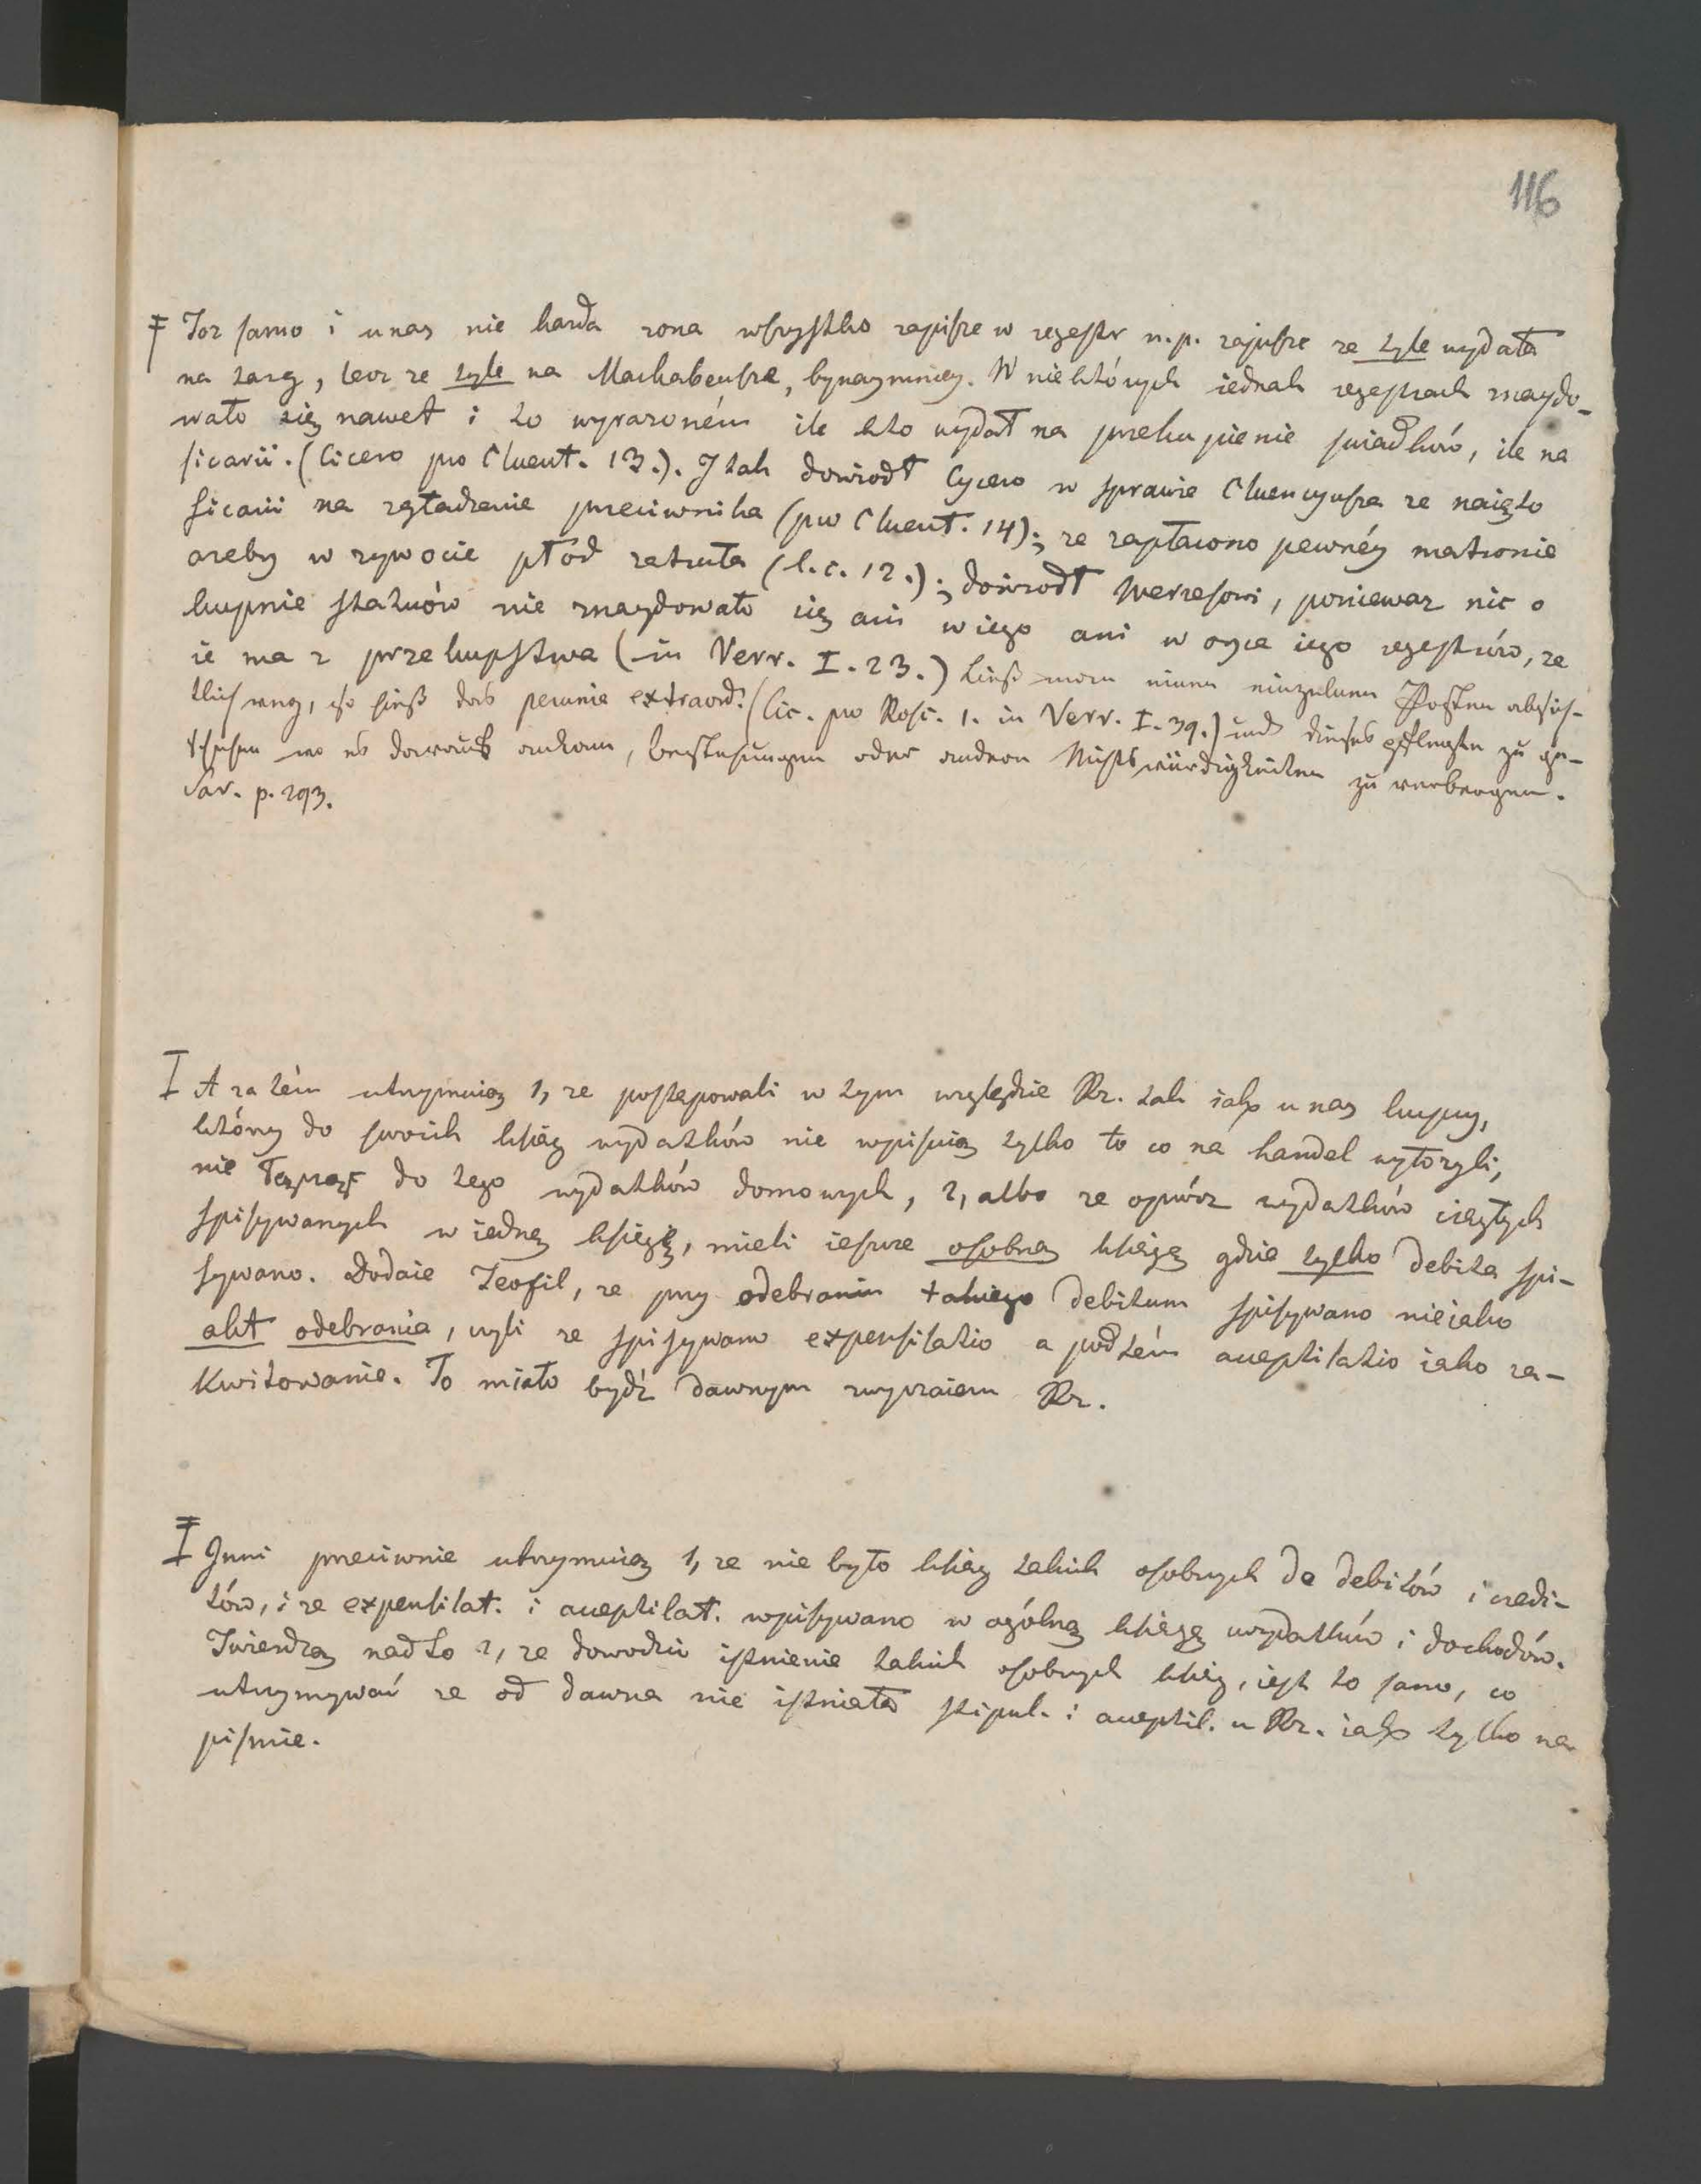 116
Toz samo i u nas nie kazda zona wszystko zapisze w regestr n.p. zapisze ze tyle wydała
na targ, lecz ze tyle na Machabeusza, bynaymniey. W niektórych iednak regestrach znaydo-
wało się nawet i to wyrazoném ile kto wydał na przekupienie świadków, ile na
sicarii. (Cicero pro Cluent. 13.). I tak dowiodł Cycero w sprawie Cluencyusza ze naięto
sicarii na zgładzenie przeciwnika (pro Cluent. 14); ze zapłacono pewnéy matronie
azeby w zywocie płód zatruła (l.c. 12.); dowiodł Werresowi, poniewaz nic o
kupnie statuów nie znaydowało się ani w iego ani w oyca iego regestrów, ze
ie ma z przekupstwa (in Verr. I. 23.) Ließ man einen einzelnen Posten absicht-
lich weg, so hieß das pecunia extraord. (Cic. pro Rosc. 1. in Verr. I. 39.) und dieses pflegte zu ge-
schehen wo es darauf ankam, bestechungen oder andere Nichtswürdigkeiten zu verbergen.
Sav. p. 293.
A za tém utrzymuią 1, ze postępowali w tym względzie Rz. tak iak u nas kupcy,
którzy do swoich ksiąg wydatków nie wpisuią tylko to co na handel wyłozyli,
nie do tego wydatków domowych, 2, albo ze oprócz wydatków ciągłych
spisywanych w iedną księgę, mieli ieszcze osobną księgę gdzie tylko debita spi-
sywano. Dodaie Teofil, ze przy odebraniu takiego debitum spisywano nieiako
akt odebrania, czyli ze spisywano expensilatio a pod tém acceptilatio iako za-
kwitowanie. To miało bydź dawnym zwyczaiem Rz.
Inni przeciwnie utrzymuią 1, ze nie było ksiąg takich osobnych do debitów i credi-
tów, i ze expensilat. i acceptilat. wpisywano w ogólną księgę wydatków i dochodów.
Twierdzą nadto 2, ze dowodzić istnienie takich osobnych ksiąg, iest to samo, co
utrzymywać ze od dawna nie istniała stipul. i acceptil. u Rz. iak tylko na
piśmie.